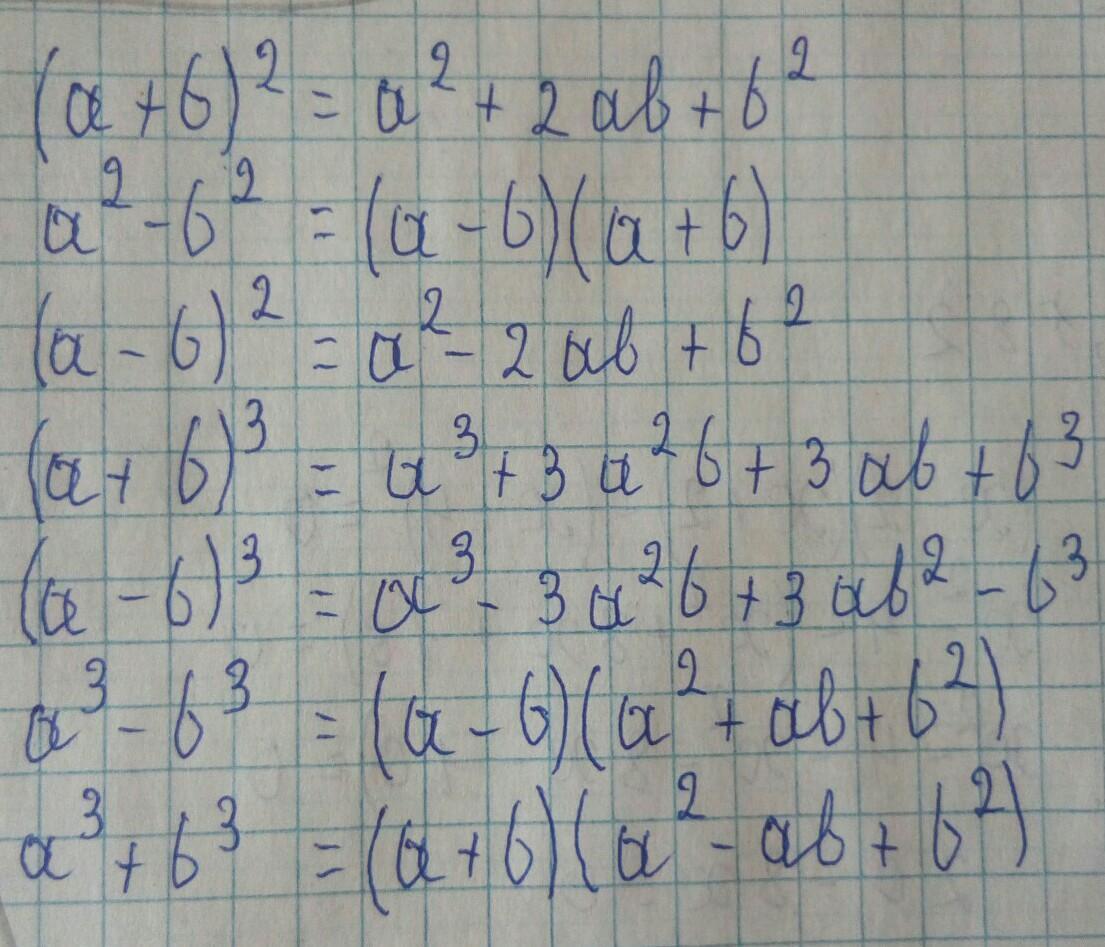 (a+b)² = a² + 2ab + b²
a² - b² = (a - b)(a + b)
(a - b)² = a² - 2ab + b²
(a + b)³ = a³ + 3a²b + 3ab + b³
(a - b)³ = a³ - 3a²b + 3ab² - b³
a³ - b³ = (a - b)(a² + ab + b²)
a³ + b³ = (a + b)(a² - ab + b²)